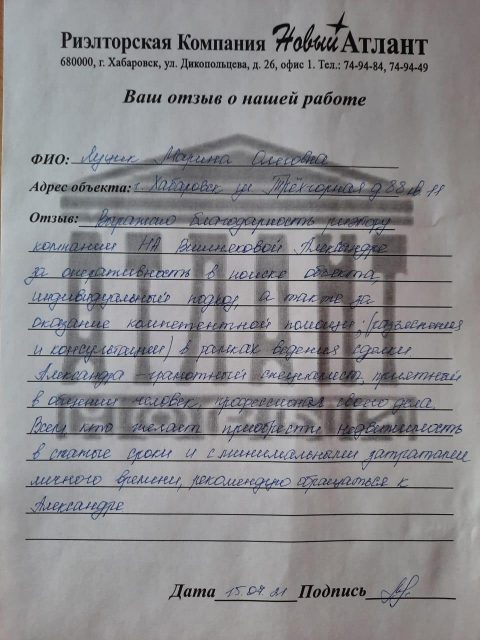 Риэлторская Компания Новый Атлант
680000, г. Хабаровск, ул. Дикопольцева, д. 26, офис 1. Тел.: 74-94-84, 74-94-49
Ваш отзыв о нашей работе
ФИО: Марина Олеговна
Адрес объекта: г. Хабаровск ул Трёхгорная д 88 кв 11
Отзыв: Выражаю благодарность риэлтору
компании НА Вишняковой Александре
за оперативность в поиске объекта,
индивидуальный подход, а также за
оказание компетентной помощи; (разъяснения
и консультации) в рамках ведения сделки.
Александра - грамотный специалист, приятный
в общении человек, профессионал своего дела.
Всем кто желает приобрести недвижимость
в сжатые сроки и с минимальными затратами
личного времени, рекомендую обращаться к
Александре
Дата 15.04.21 Подпись